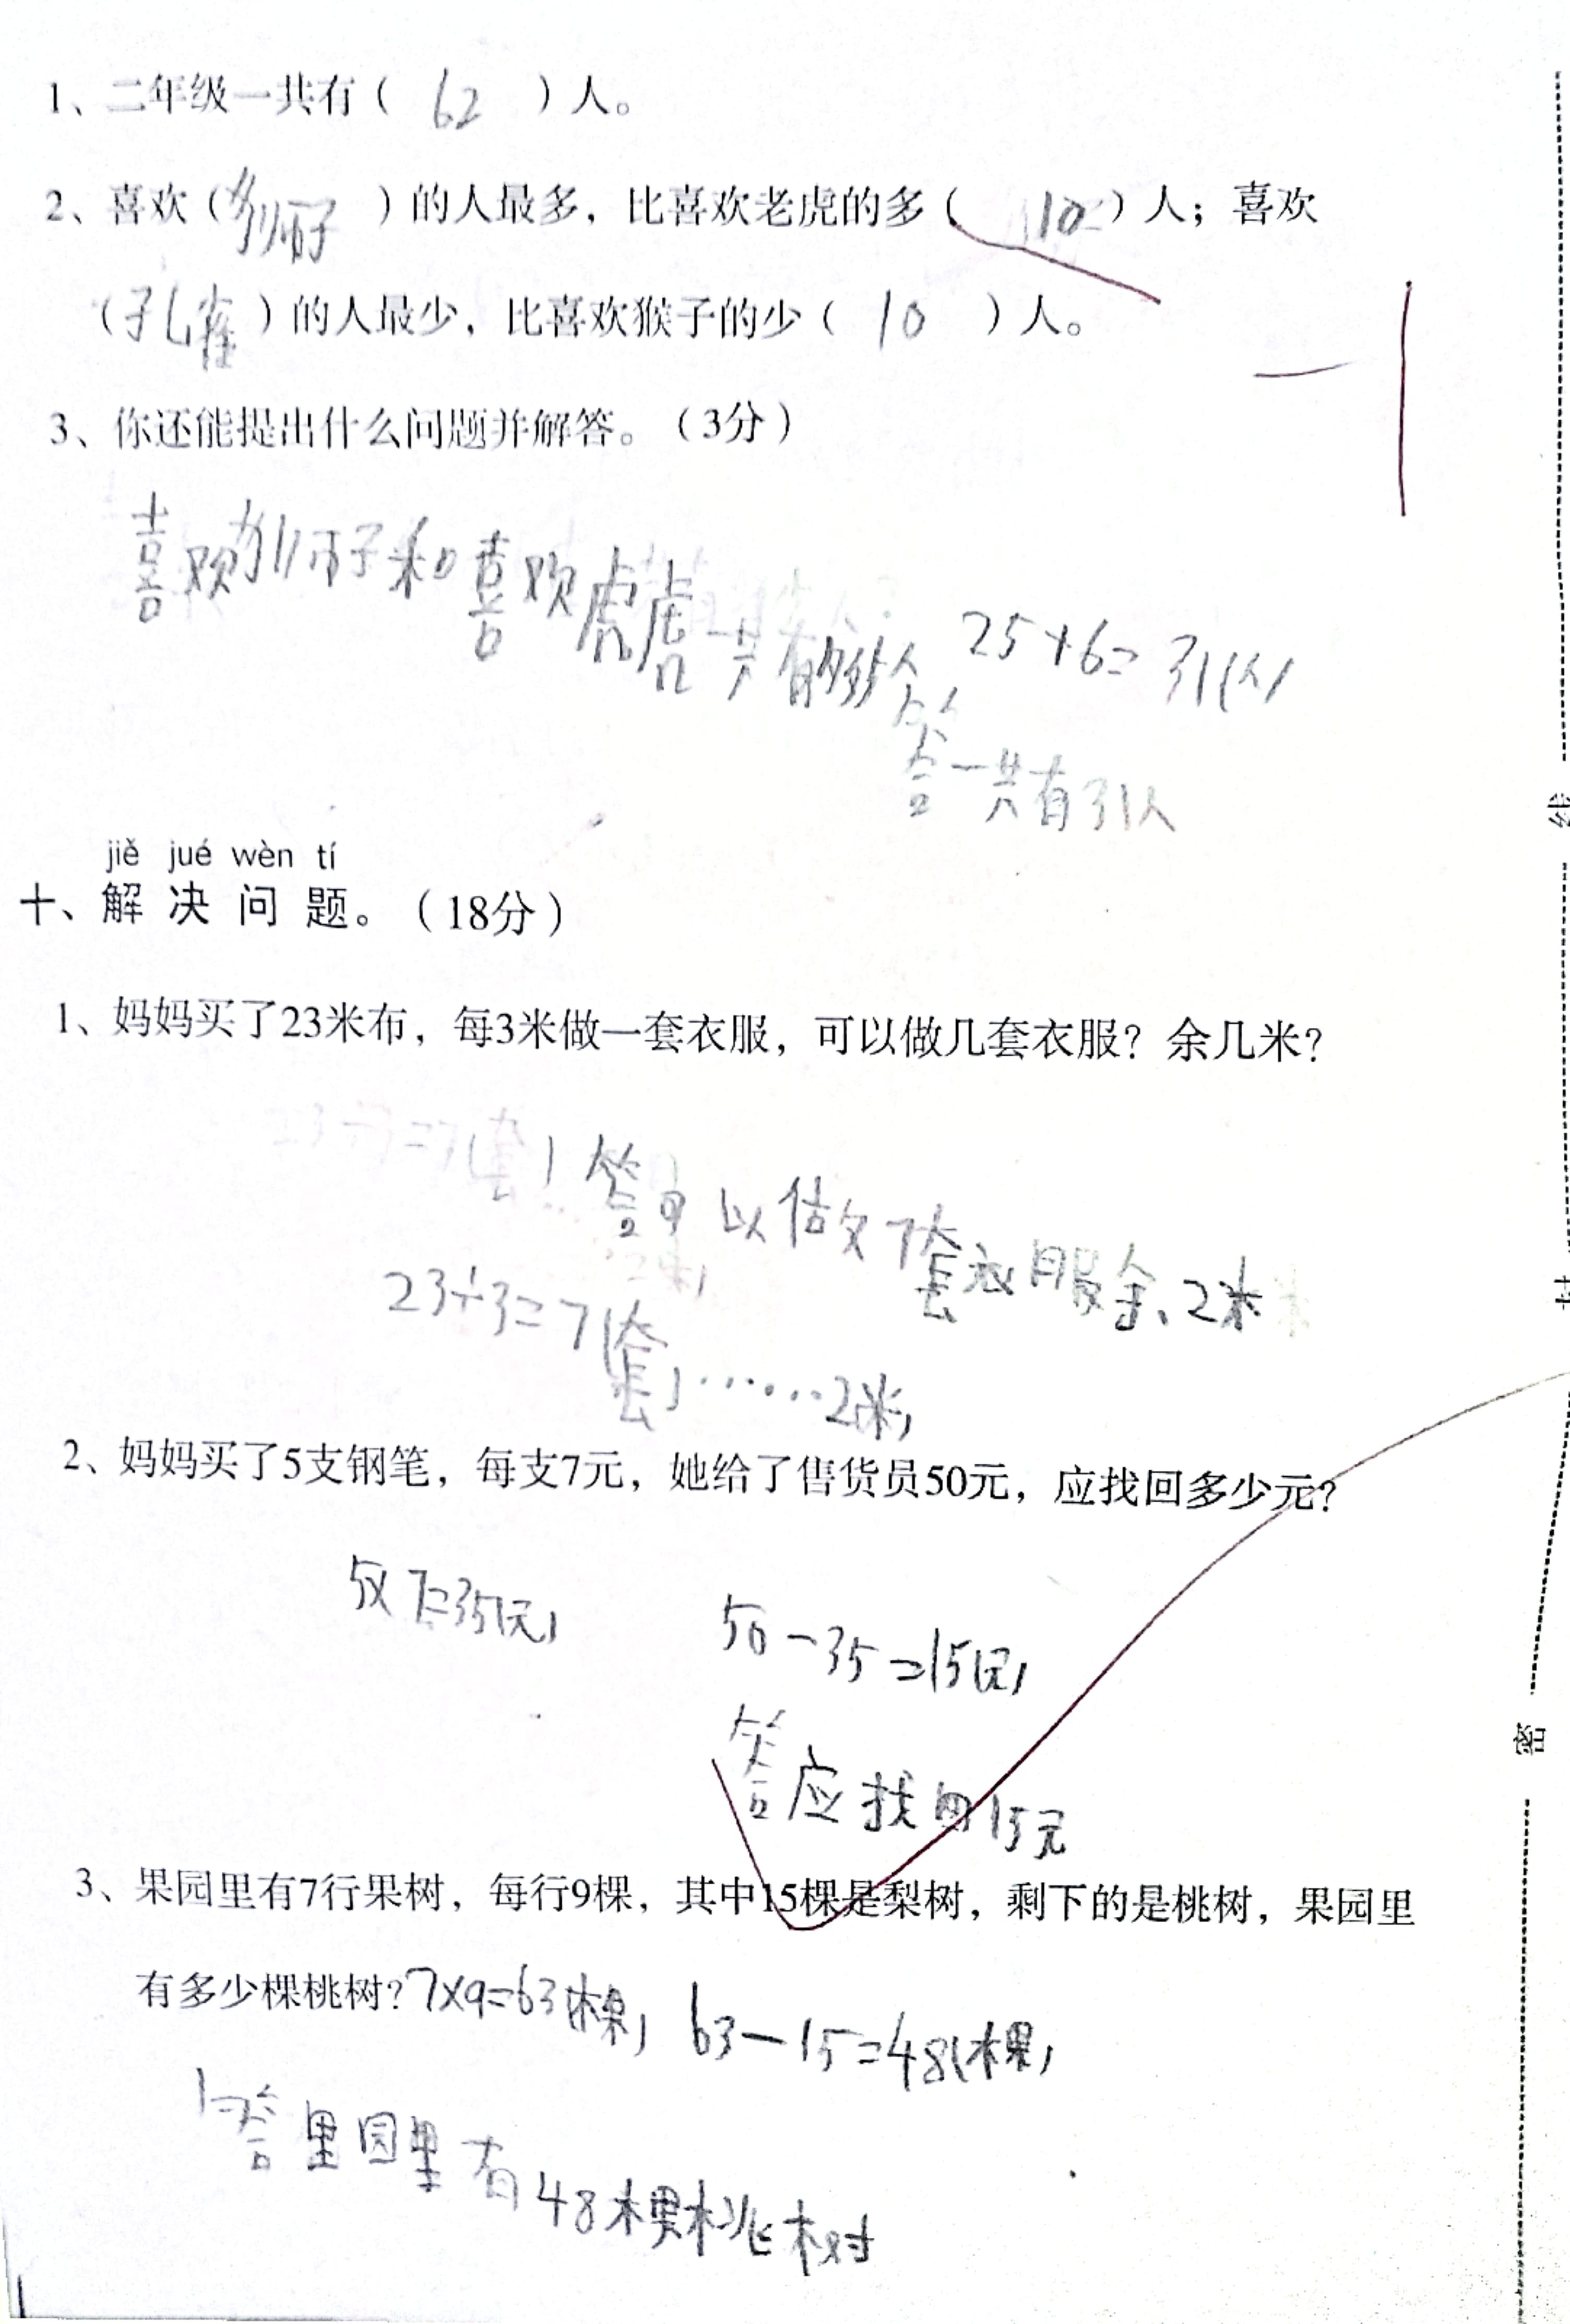 1、二年级一共有（ 62 ）人。
2、喜欢（狮子）的人最多，比喜欢老虎的多（ 10 ）人；喜欢
（孔雀）的人最少，比喜欢猴子的少（ 10 ）人。
3、你还能提出什么问题并解答。（3分）
喜欢狮子和喜欢
一共有 25+6=31(人)
答一共有31人
jiě jué wèn tí
十、解决问题。（18分）
1、妈妈买了23米布，每3米做一套衣服，可以做几套衣服？余几米？
答可以做7套衣服余、2米
23÷3=7(套)……2(米)
2、妈妈买了5支钢笔，每支7元，她给了售货员50元，应找回多少元？
5×7=35(元)
50-35=15(元)
答应找回15元
3、果园里有7行果树，每行9棵，其中15棵是梨树，剩下的是桃树，果园里
有多少棵桃树？7×9=63(棵) 63-15=48(棵)
答里园里有48棵桃树
线
密